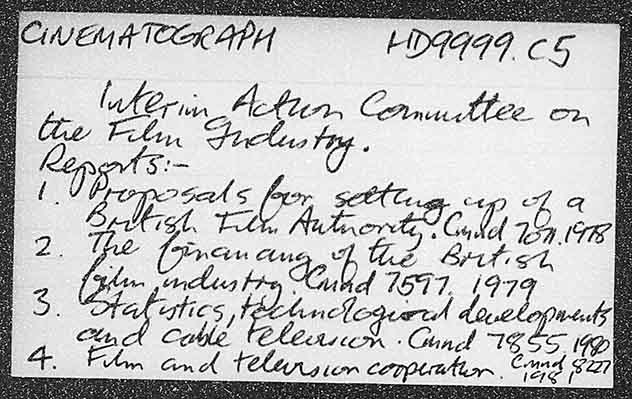 CINEMATOGRAPH HD9999.C5
Interim Action Committee on
the Film Industry.
Reports:-
1. Proposals for setting up of a
British Film Authority. Cmnd 7071. 1978
2. The financing of the British
film industry. Cmnd 7597. 1979
3. Statistics, technological developments
and cable television. Cmnd 7855 1980
4. Film and television cooperation. Cmnd 8227
1981